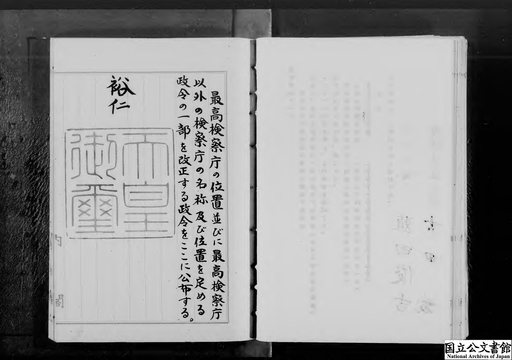 最高検察庁の位置並びに最高検察庁
以外の検察庁の名称及び位置を定める
政令の一部を改正する政令をここに公布する。
裕仁
天皇
御璽
国立公文書館
National Archives of Japan